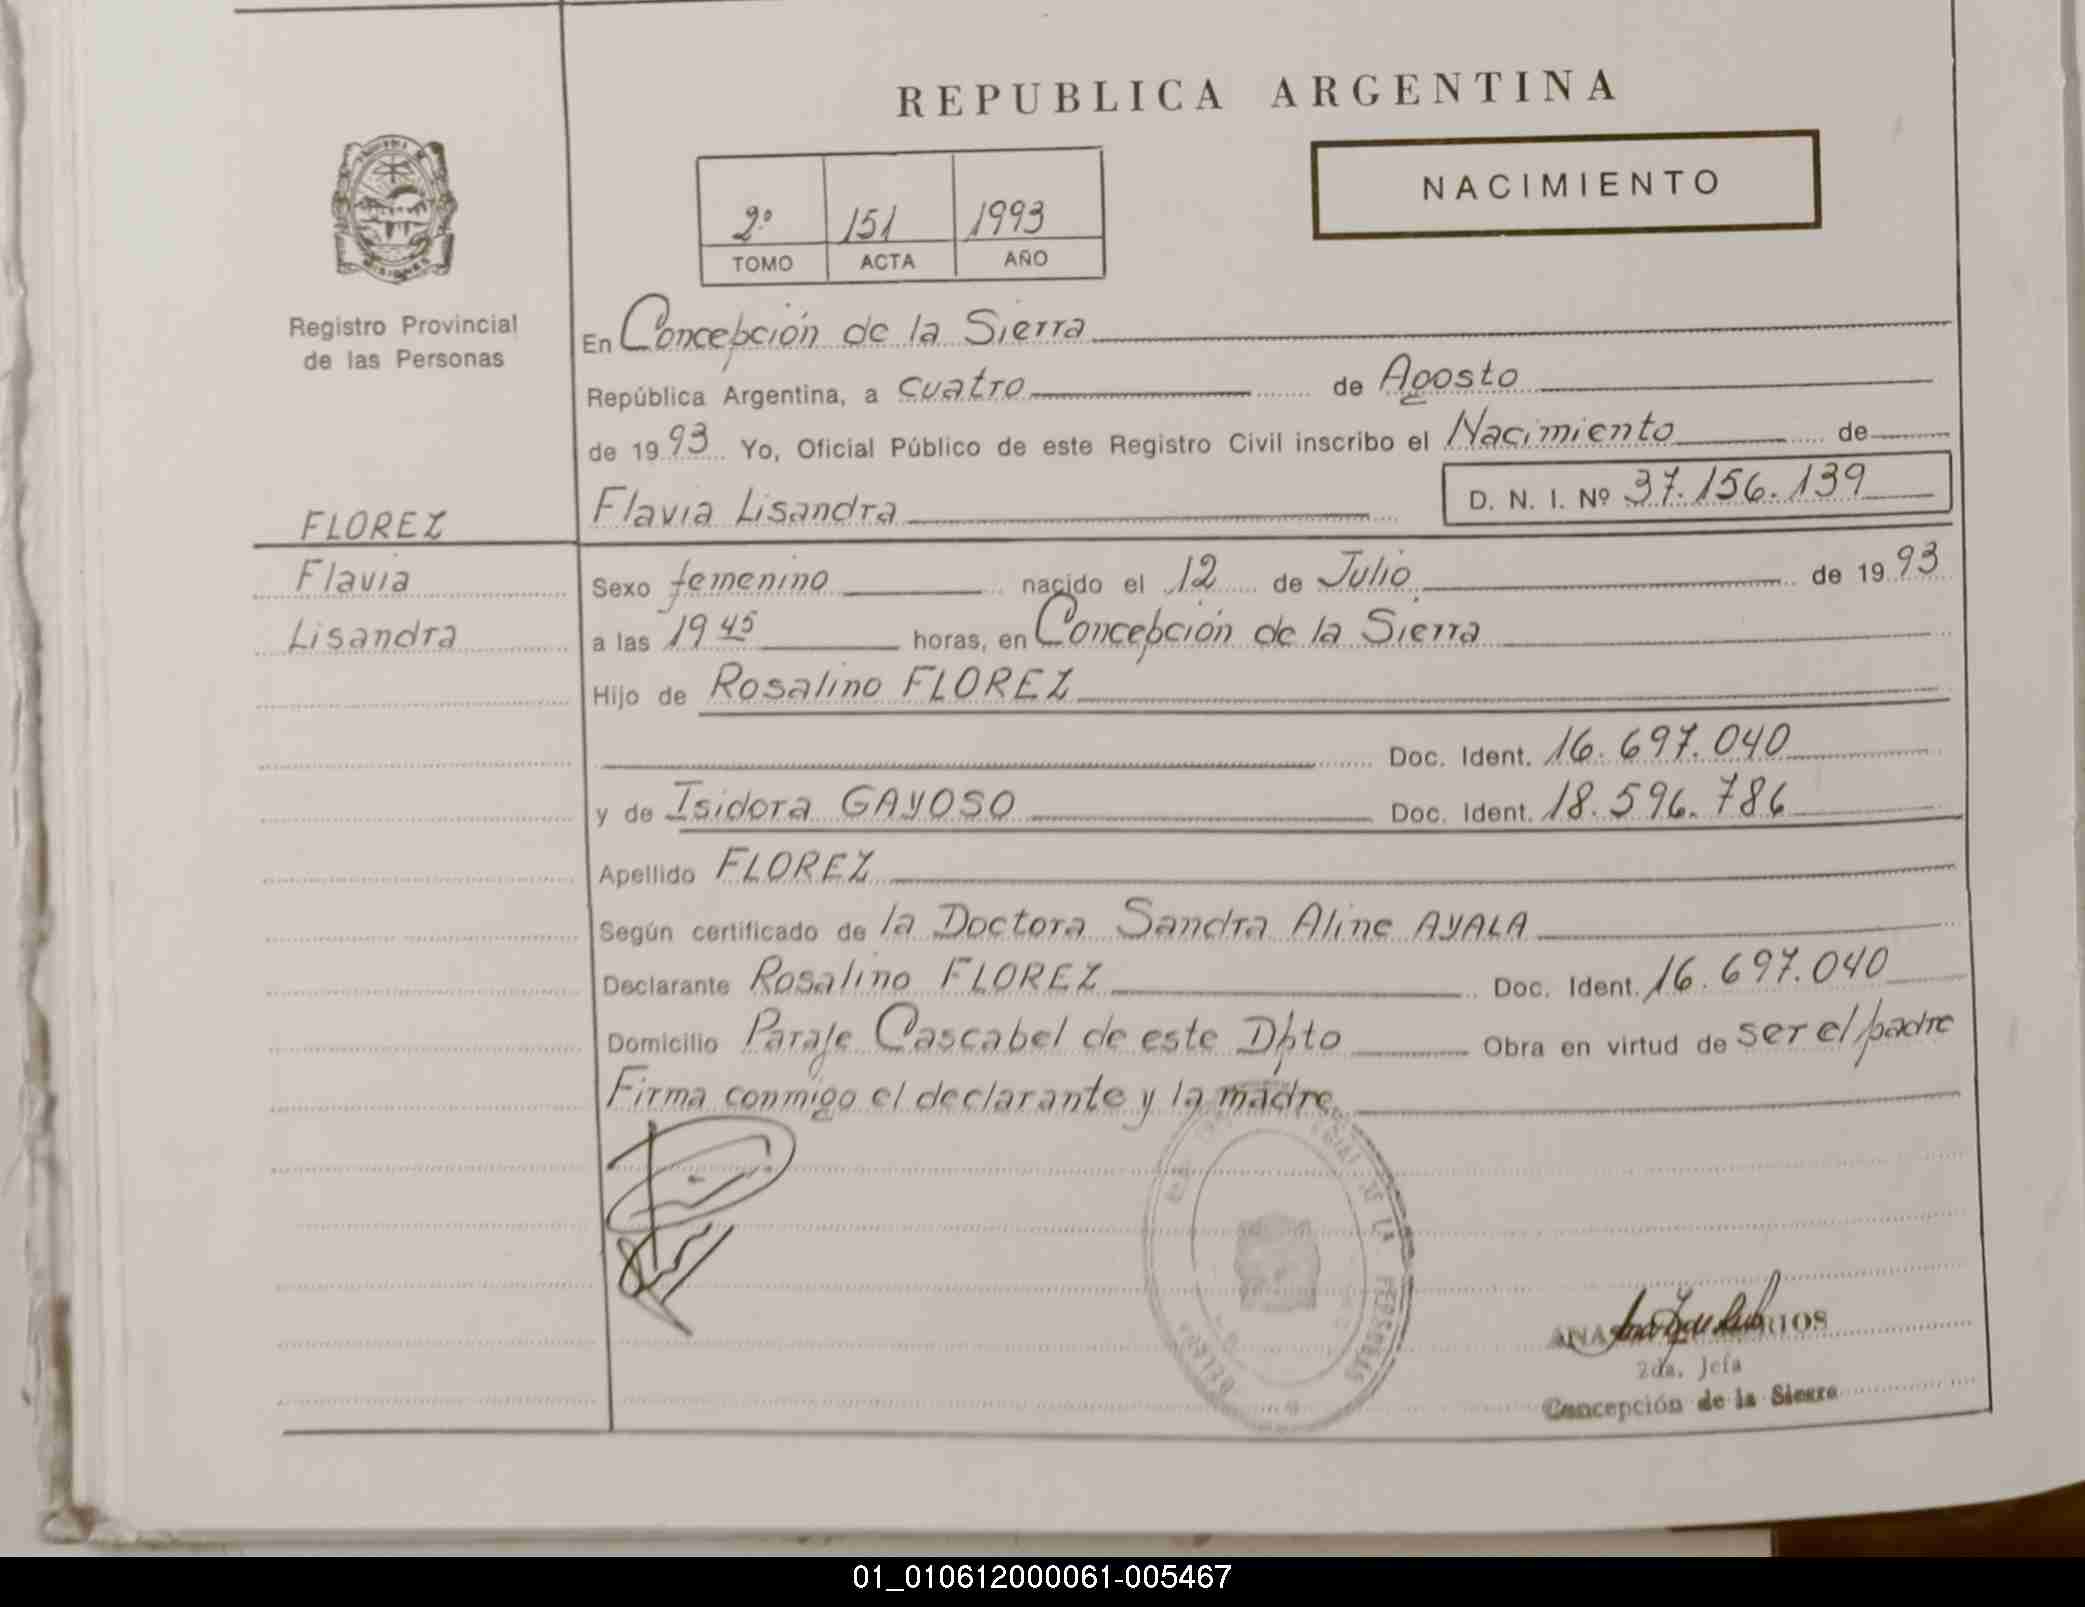 REPUBLICA ARGENTINA
NACIMIENTO
2º 151 1993
TOMO ACTA AÑO
Registro Provincial
de las Personas
MISIONES
En Concepción de la Sierra
República Argentina, a cuatro de Agosto
de 1993 Yo, Oficial Público de este Registro Civil inscribo el Nacimiento de
Flavia Lisandra D. N. I. Nº 37.156.139
FLOREZ
Flavia
Lisandra
Sexo femenino nacido el 12 de Julio de 1993
a las 19 45 horas, en Concepción de la Sierra
Hijo de Rosalino FLOREZ
Doc. Ident. 16.697.040
y de Isidora GAYOSO Doc. Ident. 18.596.786
Apellido FLOREZ
Según certificado de la Doctora Sandra Aline AYALA
Declarante Rosalino FLOREZ Doc. Ident. 16.697.040
Domicilio Paraje Cascabel de este Dpto Obra en virtud de ser el padre
Firma conmigo el declarante y la madre
DE LAS PERSONAS
ANA
2da. Jefa
Concepción de la Sierra
01_010612000061-005467